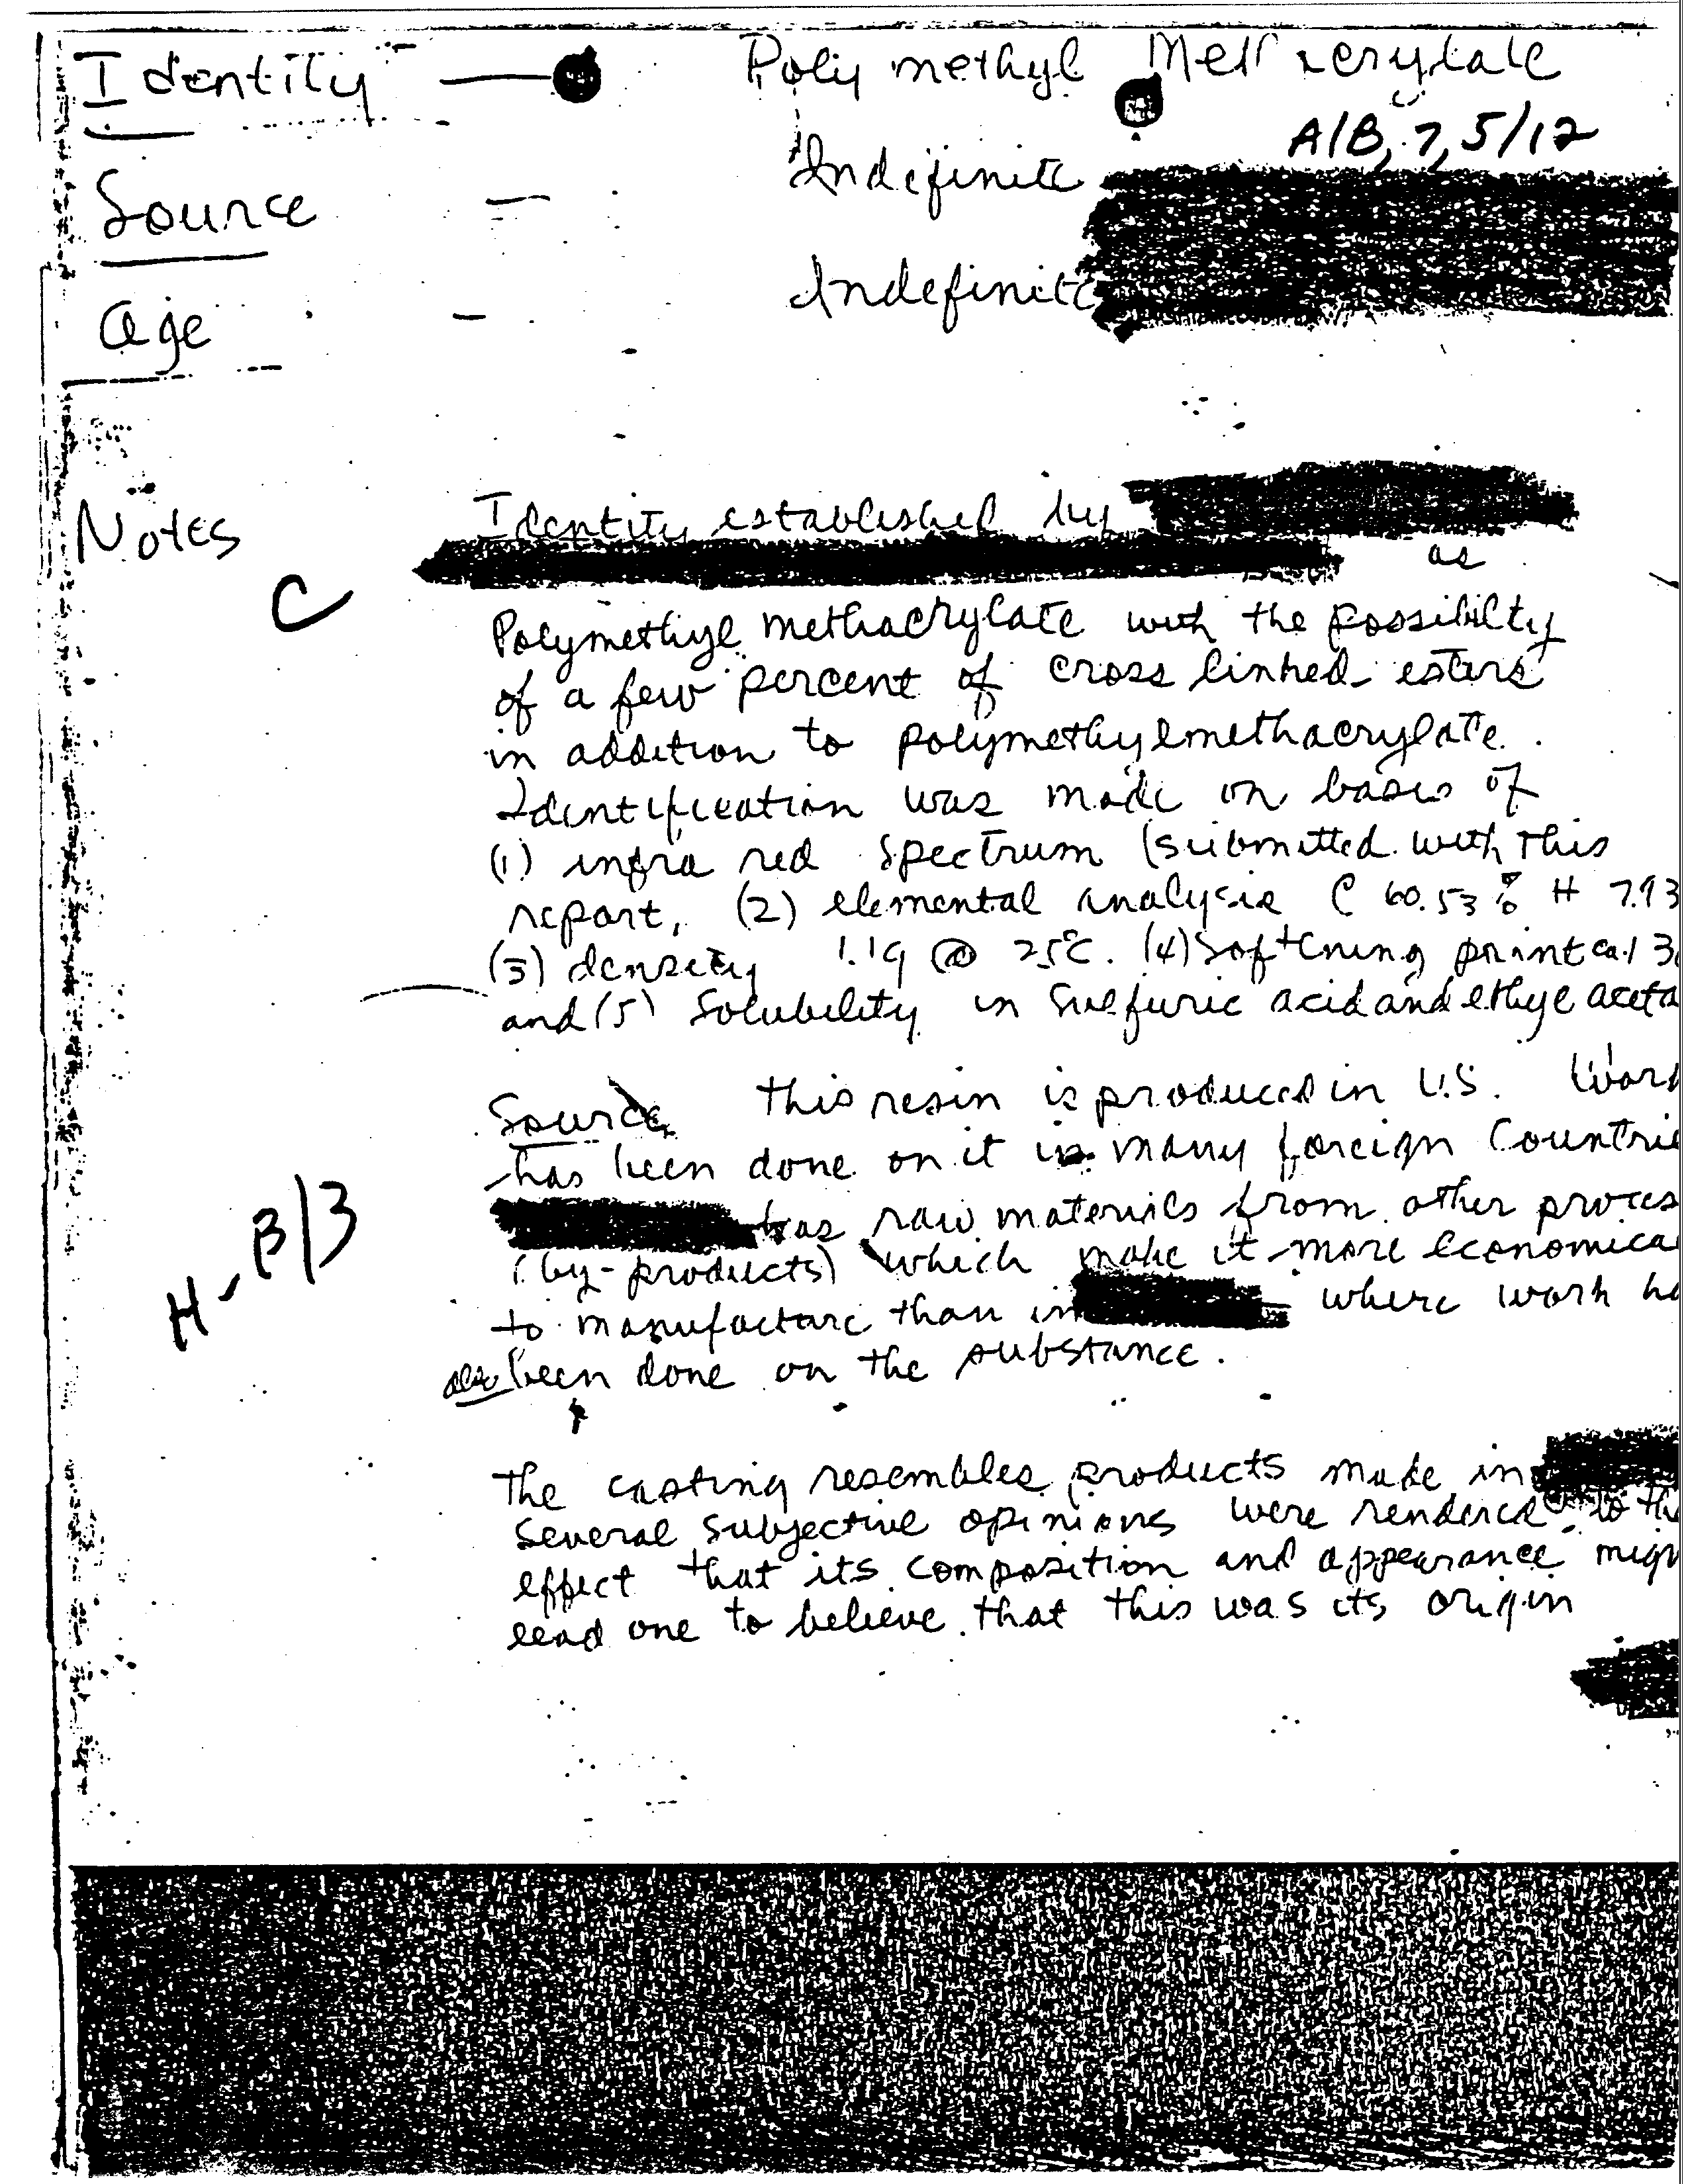 Identity — Poly methyl Methacrylate
A/B, 7, 5/12
Source — Indefinite
Age - Indefinite
Notes Identity established by
as
C
Polymethyl methacrylate with the possibilty
of a few percent of cross linked esters
in addition to polymethylmethacrylate.
Identification was made on basis of
(1) infra red spectrum (submitted with this
report, (2) elemental analysis C 60.53% H 7.93
(3) density 1.19 @ 25°C. (4) Softening point ca. 13
and (5) Solubility in Sulfuric acid and ethyl aceta
Source This resin is produced in U.S. Work
has been done on it in many foreign Countrie
has raw materials from other proces
H-B/3
(by-products) which make it more economica
to manufacture than in where work ha
also been done on the substance.
The casting resembles products made in
Several subjective opinions were rendered to the
effect that its composition and appearance migh
lead one to believe that this was its origin